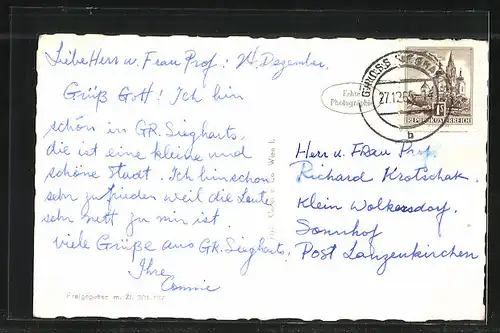 Liebe Herr u. Frau Prof: 24. Dezember
Grüß Gott! Ich bin
schön in GR. Siegharts,
die ist eine kleine und
schöne Stadt. Ich bin schon
sehr zufrieden weil die Leute
sehr nett zu mir ist.
viele Grüße aus GR. Siegharts,
Ihre
Connie
Echte
Photographie
GROSS
27.12.60
b
REPUBLIK ÖSTERREICH
Herr u. Frau Prof.
Richard Krotschak
Klein Wolkersdorf,
Sonnhof
Post Lanzenkirchen
Co. Wien I.
Freigegeben m. Zl.